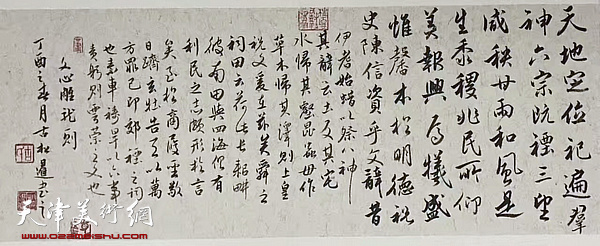 天地定位祀遍群
神六宗既禋三望
咸秩甘雨和风是
生黍稷兆民所仰
美報興焉犧盛
惟馨本於明德祝
史陳信資乎文辭昔
伊耆始蜡以祭八神
其辭云土反其宅
水歸其壑昆蟲毋作
草木歸其澤則上皇
祝文爰在茲矣舜之
祠田云荷此長耜耕
彼南畝與四海俱有
利民之志頗形於言
矣至於商履聖敬
日躋玄牡告天以萬
方罪己即郊禋之詞
也素車禱旱以六事
責躬則雩禜之文也
文心雕龍一則
丁酉之春月古松
天津美術網
www.022meishu.com